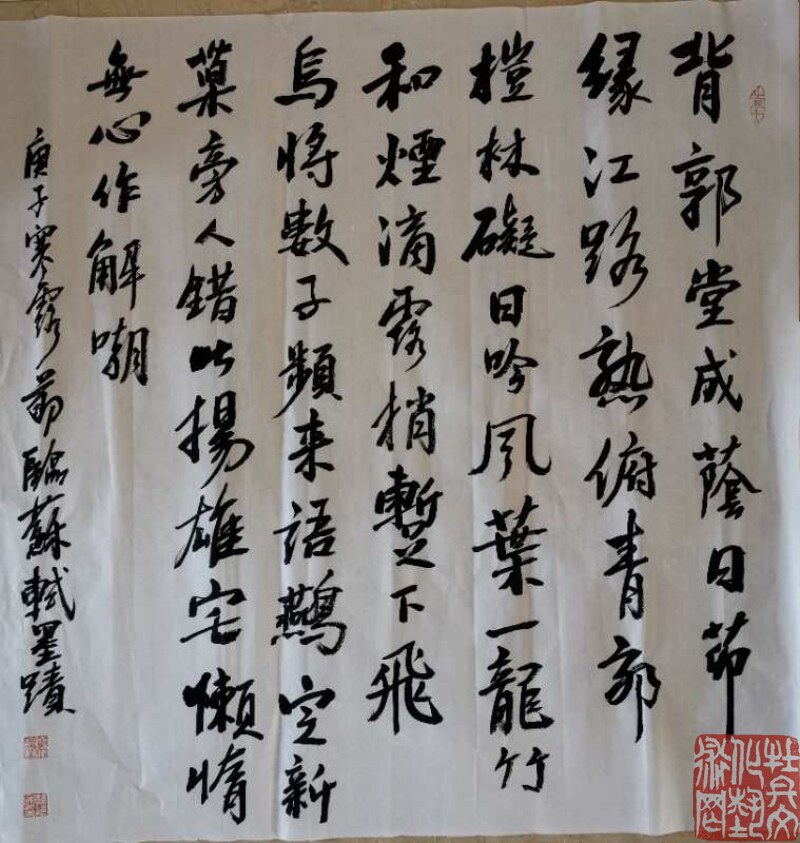 背郭堂成蔭日茆
緣江路熟俯青郊
榿林礙日吟風葉一龍竹
和煙滴露梢暫下飛
烏將數子頻来語鷰定新
巢旁人錯比揚雄宅懶惰
無心作解嘲
庚子寒露莭臨蘇軾墨蹟